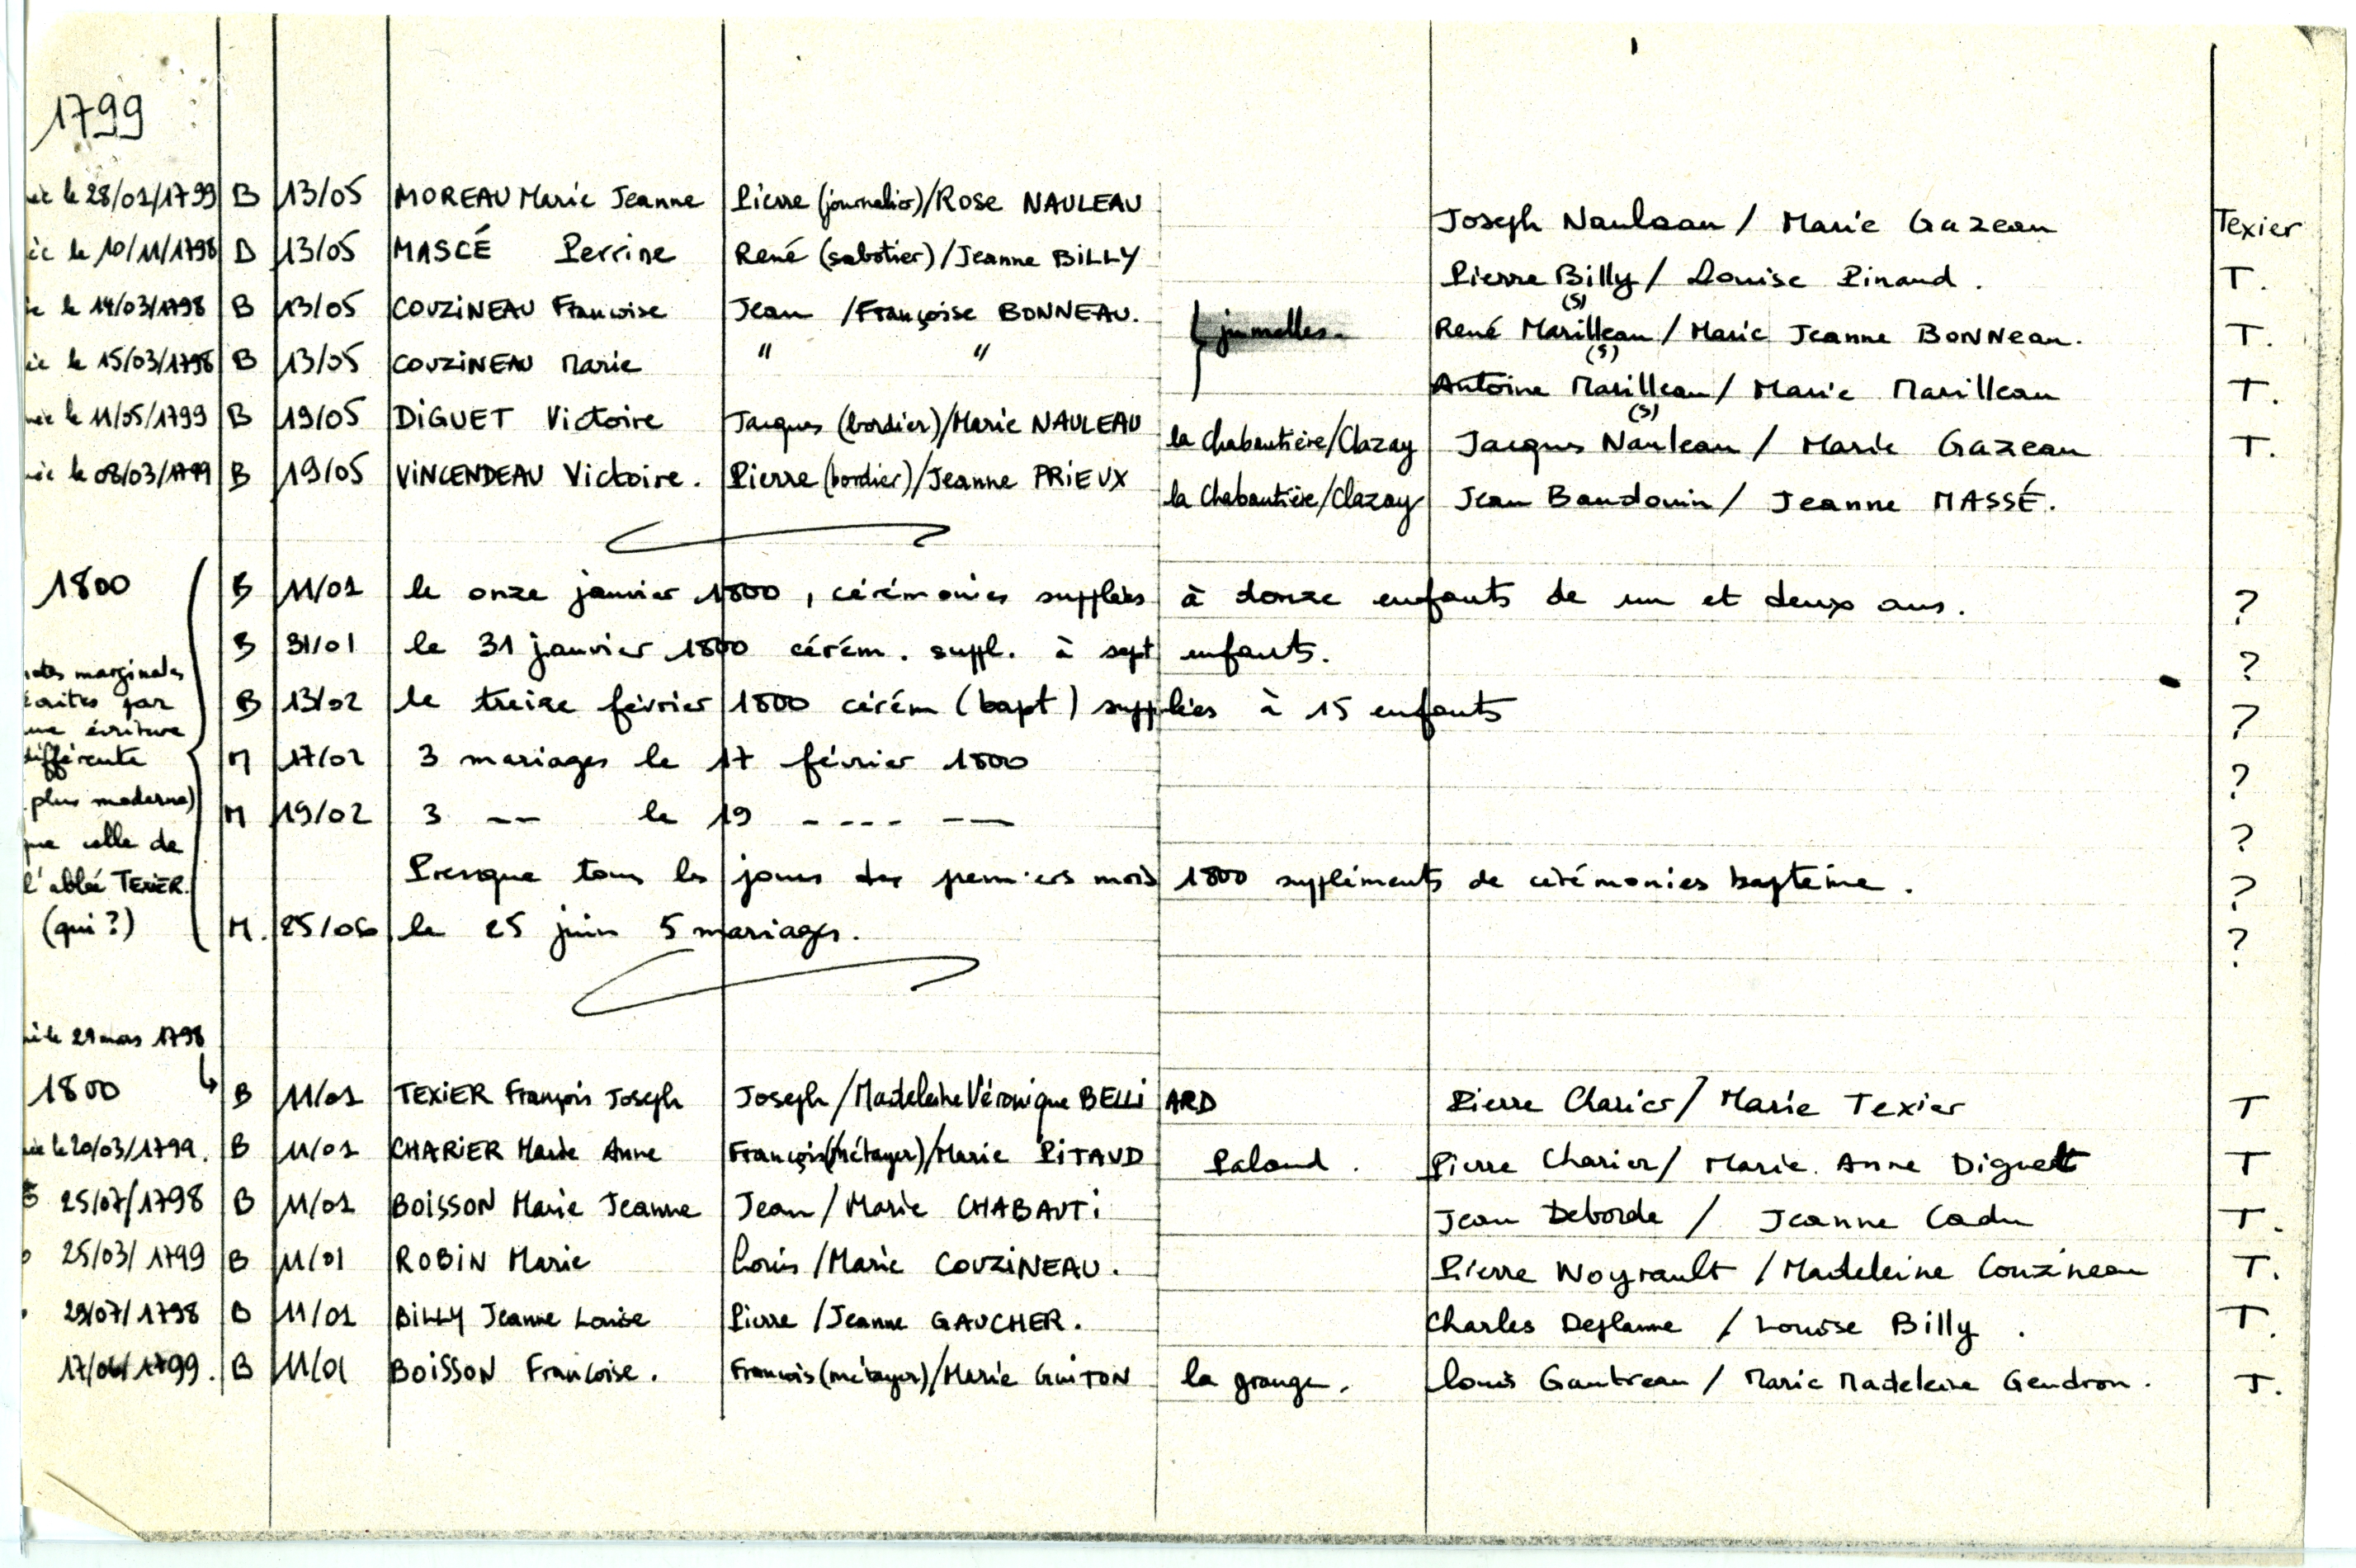 1799
née le 28/01/1799 B 13/05 MOREAU Marie Jeanne Pierre (journalier)/Rose NAULEAU Joseph Nauleau / Marie Gazeau Texier
ée le 10/11/1798 B 13/05 MASCÉ Perrine René (sabotier)/Jeanne BILLY Pierre Billy / Louise Pinaud. T.
ée le 14/03/1798 B 13/05 COUZINEAU Francoise Jean /Françoise BONNEAU. jumelles. René Marilleau (S) / Marie Jeanne BONNeau. T.
ée le 15/03/1798 B 13/05 COUZINEAU Marie " " Antoine Marilleau (S) / Marie Marilleau T.
née le 11/05/1799 B 19/05 DIGUET Victoire Jacques (bordier)/Marie NAULEAU la Chabautière/Clazay Jacques Nauleau (S) / Marie Gazeau T.
née le 08/03/1799 B 19/05 VINCENDEAU Victoire. Pierre (bordier)/Jeanne PRIEUX la Chabautière/Clazay Jean Baudouin / Jeanne MASSÉ.
1800 B 11/01 le onze janvier 1800, cérémonies supplées à donze enfants de un et deux ans. ?
B 31/01 le 31 janvier 1800 cérém. suppl. à sept enfants. ?
B 13/02 le treize février 1800 cérém (bapt) supplées à 15 enfants ?
M 17/02 3 mariages le 17 février 1800 ?
M 19/02 3 -- le 19 ---- -- ?
Presque tous les jours des premiers mois 1800 suppléments de cérémonies bapteme. ?
M. 25/06 le 25 juin 5 mariages. ?
notes marginales
écrites par
une écriture
différente
plus moderne)
que celle de
l'abbé TEXIER.
(qui ?)
né le 29 mars 1798
1800 B 11/01 TEXIER François Joseph Joseph/Madeleine Véronique BELLIARD Pierre Charier/ Marie Texier T
née le 20/03/1799. B 11/01 CHARIER Marie Anne François(métayer)/Marie PITAUD Paloud. Pierre Charier/ Marie Anne Diguet T
25/07/1798 B 11/01 BOISSON Marie Jeanne Jean/ Marie CHABAUTI Jean Deborde / Jeanne Cadu T.
25/03/1799 B 11/01 ROBIN Marie Louis /Marie COUZINEAU. Pierre Noyrault /Madeleine Couzineau T.
29/07/1798 B 11/01 BILLY Jeanne Louise Pierre /Jeanne GAUCHER. Charles Deflanne / Louise Billy. T.
17/06/1799. B 11/01 BOISSON Francoise. Francois (métayer)/Marie GUITON la grange. Louis Gautreau / Marie Madeleine Gendron. T.